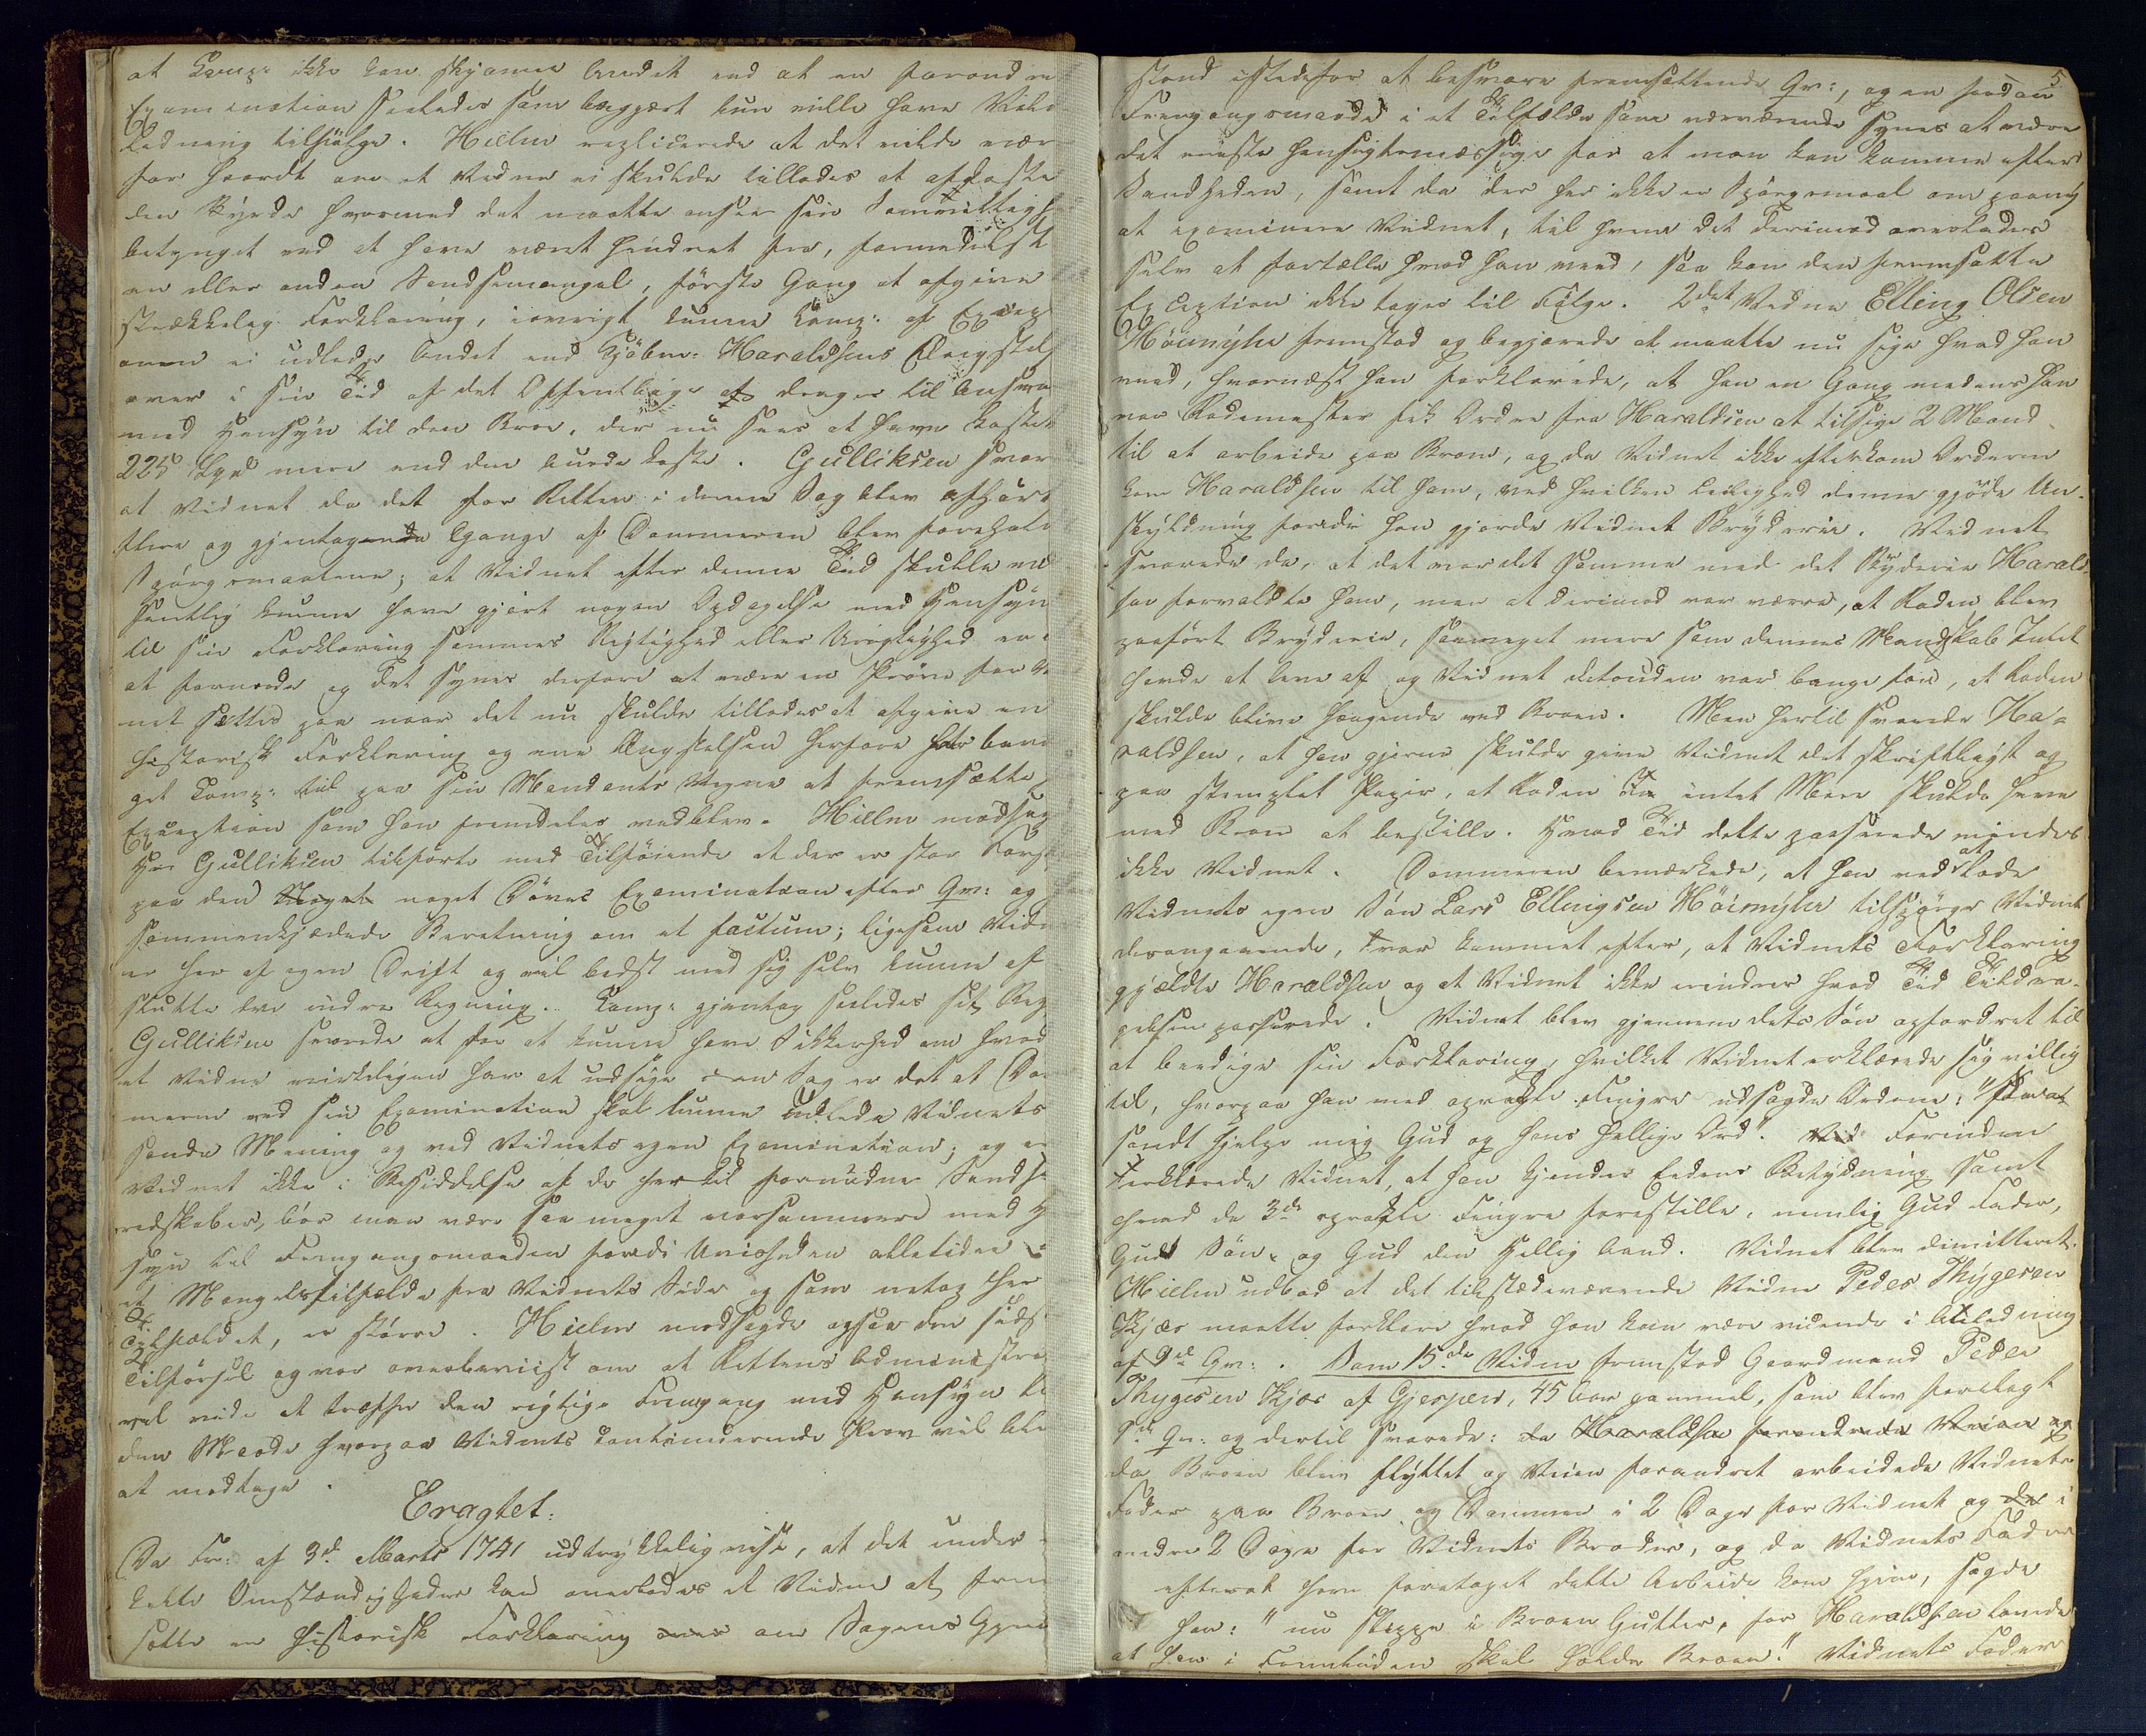 at Comp: ikke kan skjønne Andet end at en forandre
Examination saaledes som begjært kun ville have Vild
ledning tilfølge. Hielm replicerede at det vilde være
for haardt om et Vidne ei skulde tillades at aflaste
den Byrde hvormed det maatte ansee sin Samvittigh
betynget ved at have været hindret fra, formedelst
en eller anden Sandsemangel, første Gang at afgive
strækkelig Forklaring, iøvrigt kunne Comp: af Excep
onen ei udlede Andet end Kjøbm: Haraldsens Ængstels
over i sin Tid af det Offentlige at drages til Ansvar
med Hensyn til den Broe, der nu sees at have kostet
225 Spd mere end den burde koste. Gulliksen svar
at Vidnet da det for Retten i denne Sag blev afhørt
flere og gjentagende Gange af Dommeren blev foreholdt
Spørgsmaalene; at Vidnet efter denne Tid skulle ve
sentlig kunne have gjort nogen Opdagelse med Hensyn
til sin Forklaring sammes Rigtighed eller Urigtighed er
at formode og det synes derfore at være en Prøve for Vi
net sættes paa naar det nu skulde tillades at afgive en
historisk Forklaring og ene Ængstelsen herfore har bevæ
get Comp: til paa sin Mandants Vegne at fremsætte
Exception som han fremdeles vedblev. Hielm modsag
Hr Gulliksen tilførte med Tilføiende at der er stor Forskj
paa den noget Døves Examination efter Qv: og
sammenkjædede Beretning om et factum; ligesom Vidn
er her af egen Drift og vil bedst med sig selv kunne af
slutte den indre Regning. Comp: gjentog saaledes sit Reg
Gulliksen svarede at for at kunne have Sikkerhed om hvad
et Vidne virkeligen har at udsige i en Sag er det at Dom
meren ved sin Examination skal kunne udlede Vidnets
sande Mening og ved Vidnets egen Examination; og er
Vidnet ikke i Besiddelse af de hertil fornødne Sandse
redskaber, bør man være saa meget varsommere med H
syn til Fremgangsmaaden fordi Uvisheden alletider i
et Mangelstilfælde fra Vidnets Side og som netop her
Tilfældet, er større. Hielm modsagde ogsaa den sids
Tilførsel og var overbeviist om at Rettens Administra
vel vide at træffe den rigtige Fremgang med Hensyn ti
den Maade hvorpaa Vidnets Continuerende Prov vil bli
at modtage.
Eragtet:
Da Fr: af 3d Marts 1741 udtrykkelig viser, at det under
kelte Omstændigheder kan overlades et Vidne at frem
sætte en historisk Forklaring om Sagens Gjen
5
stand istedetfor at besvare fremsættende Qv:, og en saadan
Fremgangsmaade i et Tilfælde som nærværende synes at være
det meeste hensigtsmæssige for at man kan komme efter
Sandheden, samt da der her ikke er Spørgsmaal om paany
at examinere Vidnet, til hvem det derimod overlades
selv at fortælle hvad han veed, saa kan den fremsatte
Exception ikke tages til Følge. 2det Vidne Elling Olsen
Høimyhr fremstod og begjærede at maatte nu sige hvad han
veed, hvornæst han forklarede, at han en Gang medens han
var Rodemester fik Ordre fra Haraldsen at tilsige 2 Mand
til at arbeide paa Broen, og da Vidnet ikke efterkom Ordren
kom Haraldsen til ham, ved hvilken Leilighed denne gjøde Und-
skyldning fordi han gjorde Vidnet Bryderie. Vidnet
svarede da, at det var det samme med det Bryderie Harald-
sen forvoldte ham, men at derimod var værre, at Roden blev
paaført Bryderie, saameget mere som dennes Mandskab Intet
havde at leve af og Vidnet desuden var bange for, at Roden
skulde blive hængende ved Broen. Men hertil svarede Ha-
raldsen, at han gjerne skulde give Vidnet det skriftligt og
paa stemplet Papir, at Roden intet Mere skulde have
med Broen at bestille. Hvad Tid dette passerede mindes
ikke Vidnet. Dommeren bemærkede, at han ved at lade
Vidnets egen Søn Lars Ellingsen Høimyhr tilspørge Vidnet
desangaaende, var kommet efter, at Vidnets Forklaring
gjældte Haraldsen og at Vidnet ikke erindrer hvad Tid Tildra-
gelsen passerede. Vidnet blev gjennem dets Søn opfordret til
at beedige sin Forklaring, hvilket Vidnet erklærede sig villig
til, hvorpaa han med oprakte Fingre udsagde Ordene: "saa
sandt hjelpe mig Gud og hans hellige Ord". Forinden
erklærede Vidnet, at han kjender Eedens Betydning samt
hvad de 3de oprakte Fingre forestille, nemlig Gud Fader,
Gud Søn og Gud den Hellig Aand. Vidnet blev dimitteret.
Hielm udbad at det tilstædeværende Vidne Peder Thygesen
Kjær maatte forklare hvad han kan være vidende i Anledning
af 9de Qv:. Som 15de Vidne fremstod Gaardmand Peder
Thygesen Kjær af Gjerpen, 45 Aar gammel, som blev forelagt
9de Qv: og dertil svarede: da Haraldsen forandrede Veien og
da Broen blev flyttet og Veien forandret arbeidede Vidnets
Fader paa Broen og Dammen i 2 Dage for Vidnet og i
andre 2 Dage for Vidnets Broder, og da Vidnets Fader
efterat have foretaget dette Arbeide kom hjem, sagde
han: "nu slippe i Broen Gutter, for Haraldsen lovede
at han i Fremtiden skal holde Broen". Vidnets Fader